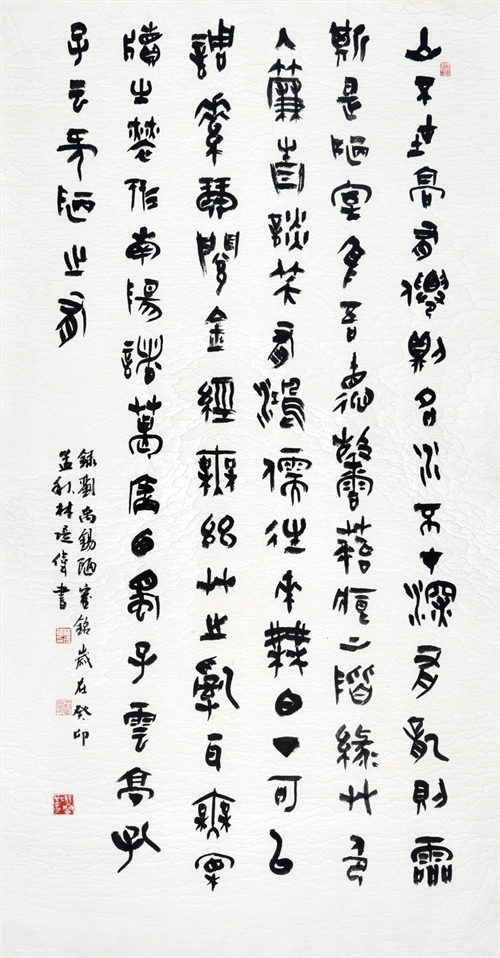 山不在高有僊則名水不在深有龍則靈
斯是陋室隹吾德馨菭痕上階綠艸色
入簾青談笑有鴻儒往來無白丁可㠯
調素琴閱金經無絲竹之亂耳無案
牘之勞形南陽諸葛廬西蜀子雲亭孔
子云何陋之有
録劉禹錫陋室銘歲在癸卯
孟秋林偉書